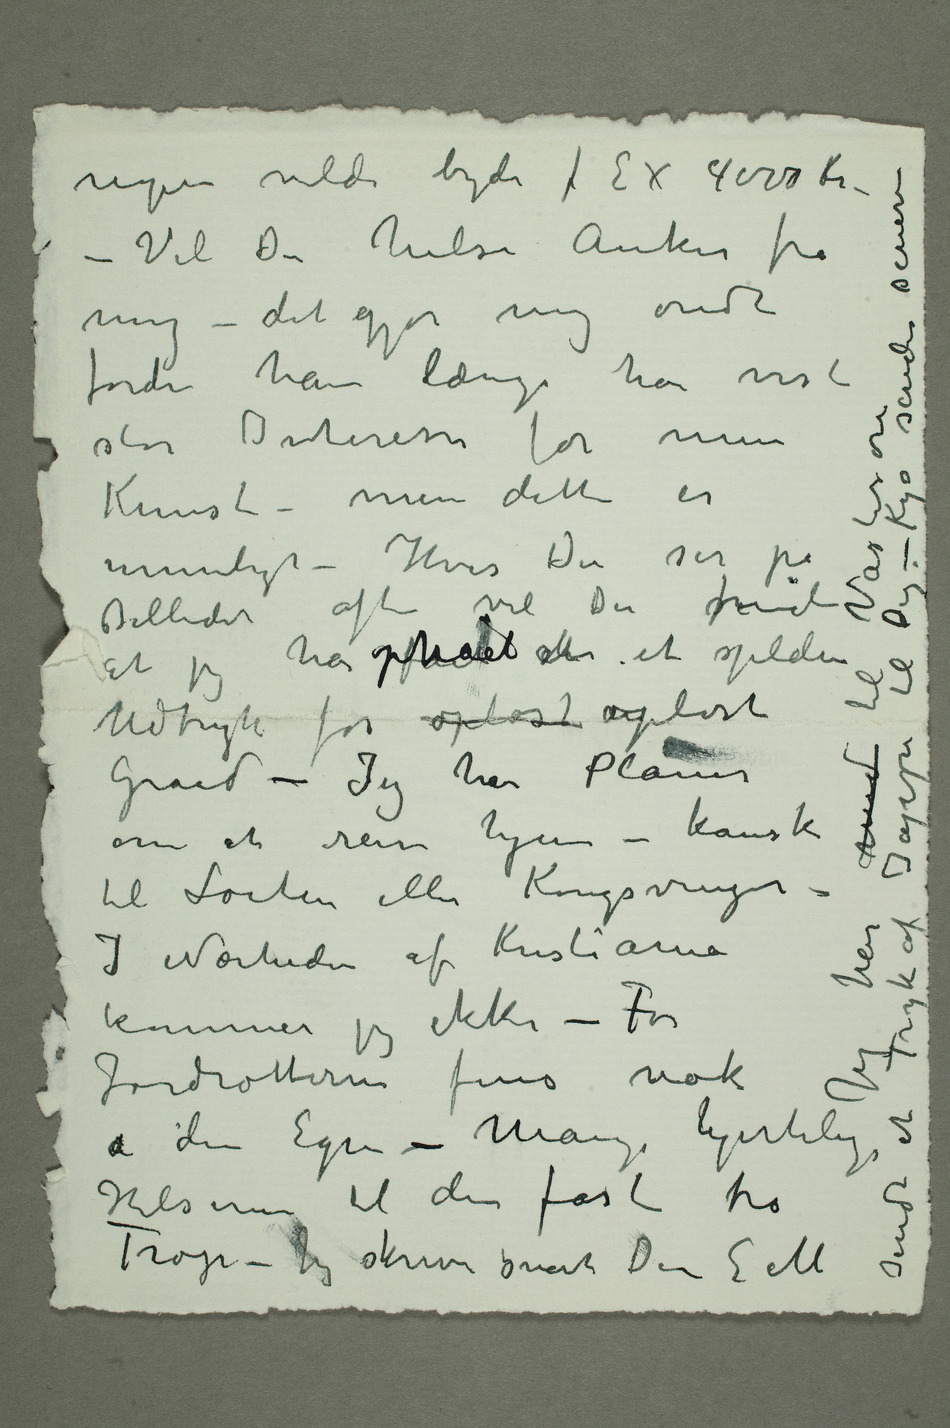 nogen vilde byde f EX 4000 kr.
– Vil Du hilse Anker fra
mig – det gjør mig ondt
fordi han længe har vist
stor Interesse for min
Kunst – men dette er
umuligt – Hvis Du ser på
Billedet ofte vil Du finde
at jeg har opnået et sjelden
Udtryk for opløst opløst
Graad – Jeg har Planer
om at reise hjem – kanske
til Løiten eller Kongsvinger –
I Nærheden af Kristiania
kommer jeg ikke – For
Jordrotterne fins nok
i den Egn – Mange hjertelige
Hilsener til den faste tro
Trop – Jeg skriver snart Din E M
Jeg har send til Vas
sendt et Tryk af Jappe til Dig – Kys sendes senere